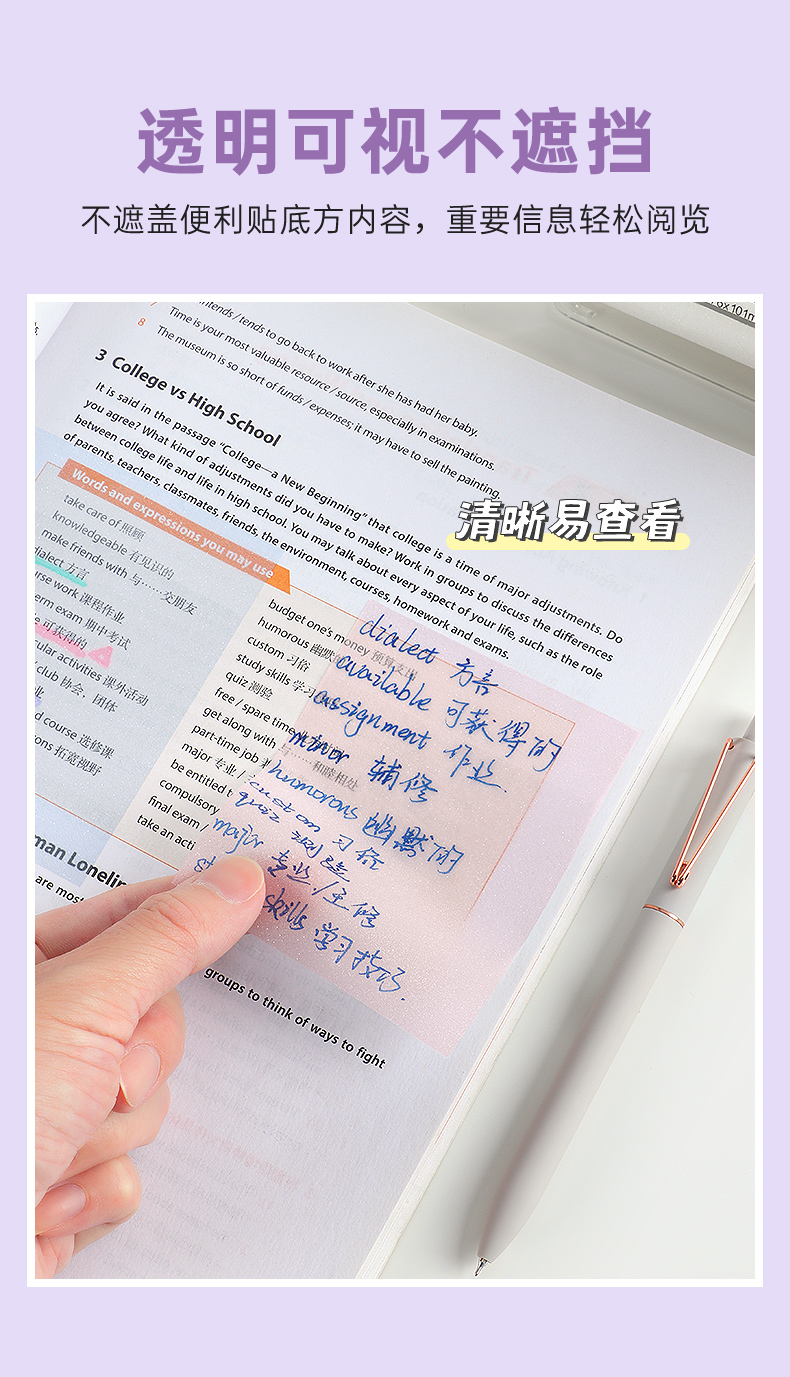 透明可视不遮挡
不遮盖便利贴底方内容，重要信息轻松阅览
6x101m
intends / tends to go back to work after she has had her baby.
Time is your most valuable resource / source, especially in examinations.
8 The museum is so short of funds / expenses; it may have to sell the painting.
3 College vs High School
It is said in the passage “College—a New Beginning” that college is a time of major adjustments. Do
you agree? What kind of adjustments did you have to make? Work in groups to discuss the differences
between college life and life in high school. You may talk about every aspect of your life, such as the role
of parents, teachers, classmates, friends, the environment, courses, homework and exams.
清晰易查看
Words and expressions you may use
take care of 照顾
knowledgeable 有见识的
make friends with 与……交朋友
dialect 方言
urse work 课程作业
erm exam 期中考试
e 可获得的
ular activities 课外活动
/ club 协会，团体
业
d course 选修课
ions 拓宽视野
budget one's money 预算支出
humorous 幽默
custom 习俗
study skills 学习
quiz 测验
free / spare time
get along with 与……和睦相处
part-time job
major 专业 /
be entitled t
compulsory
final exam /
take an acti
dialect 方言
available 可获得的
assignment 作业
minor 辅修
humorous 幽默的
custom 习俗
quiz 测验
major 专业/主修
skills 学习技巧.
man Lonelin
are most
groups to think of ways to fight